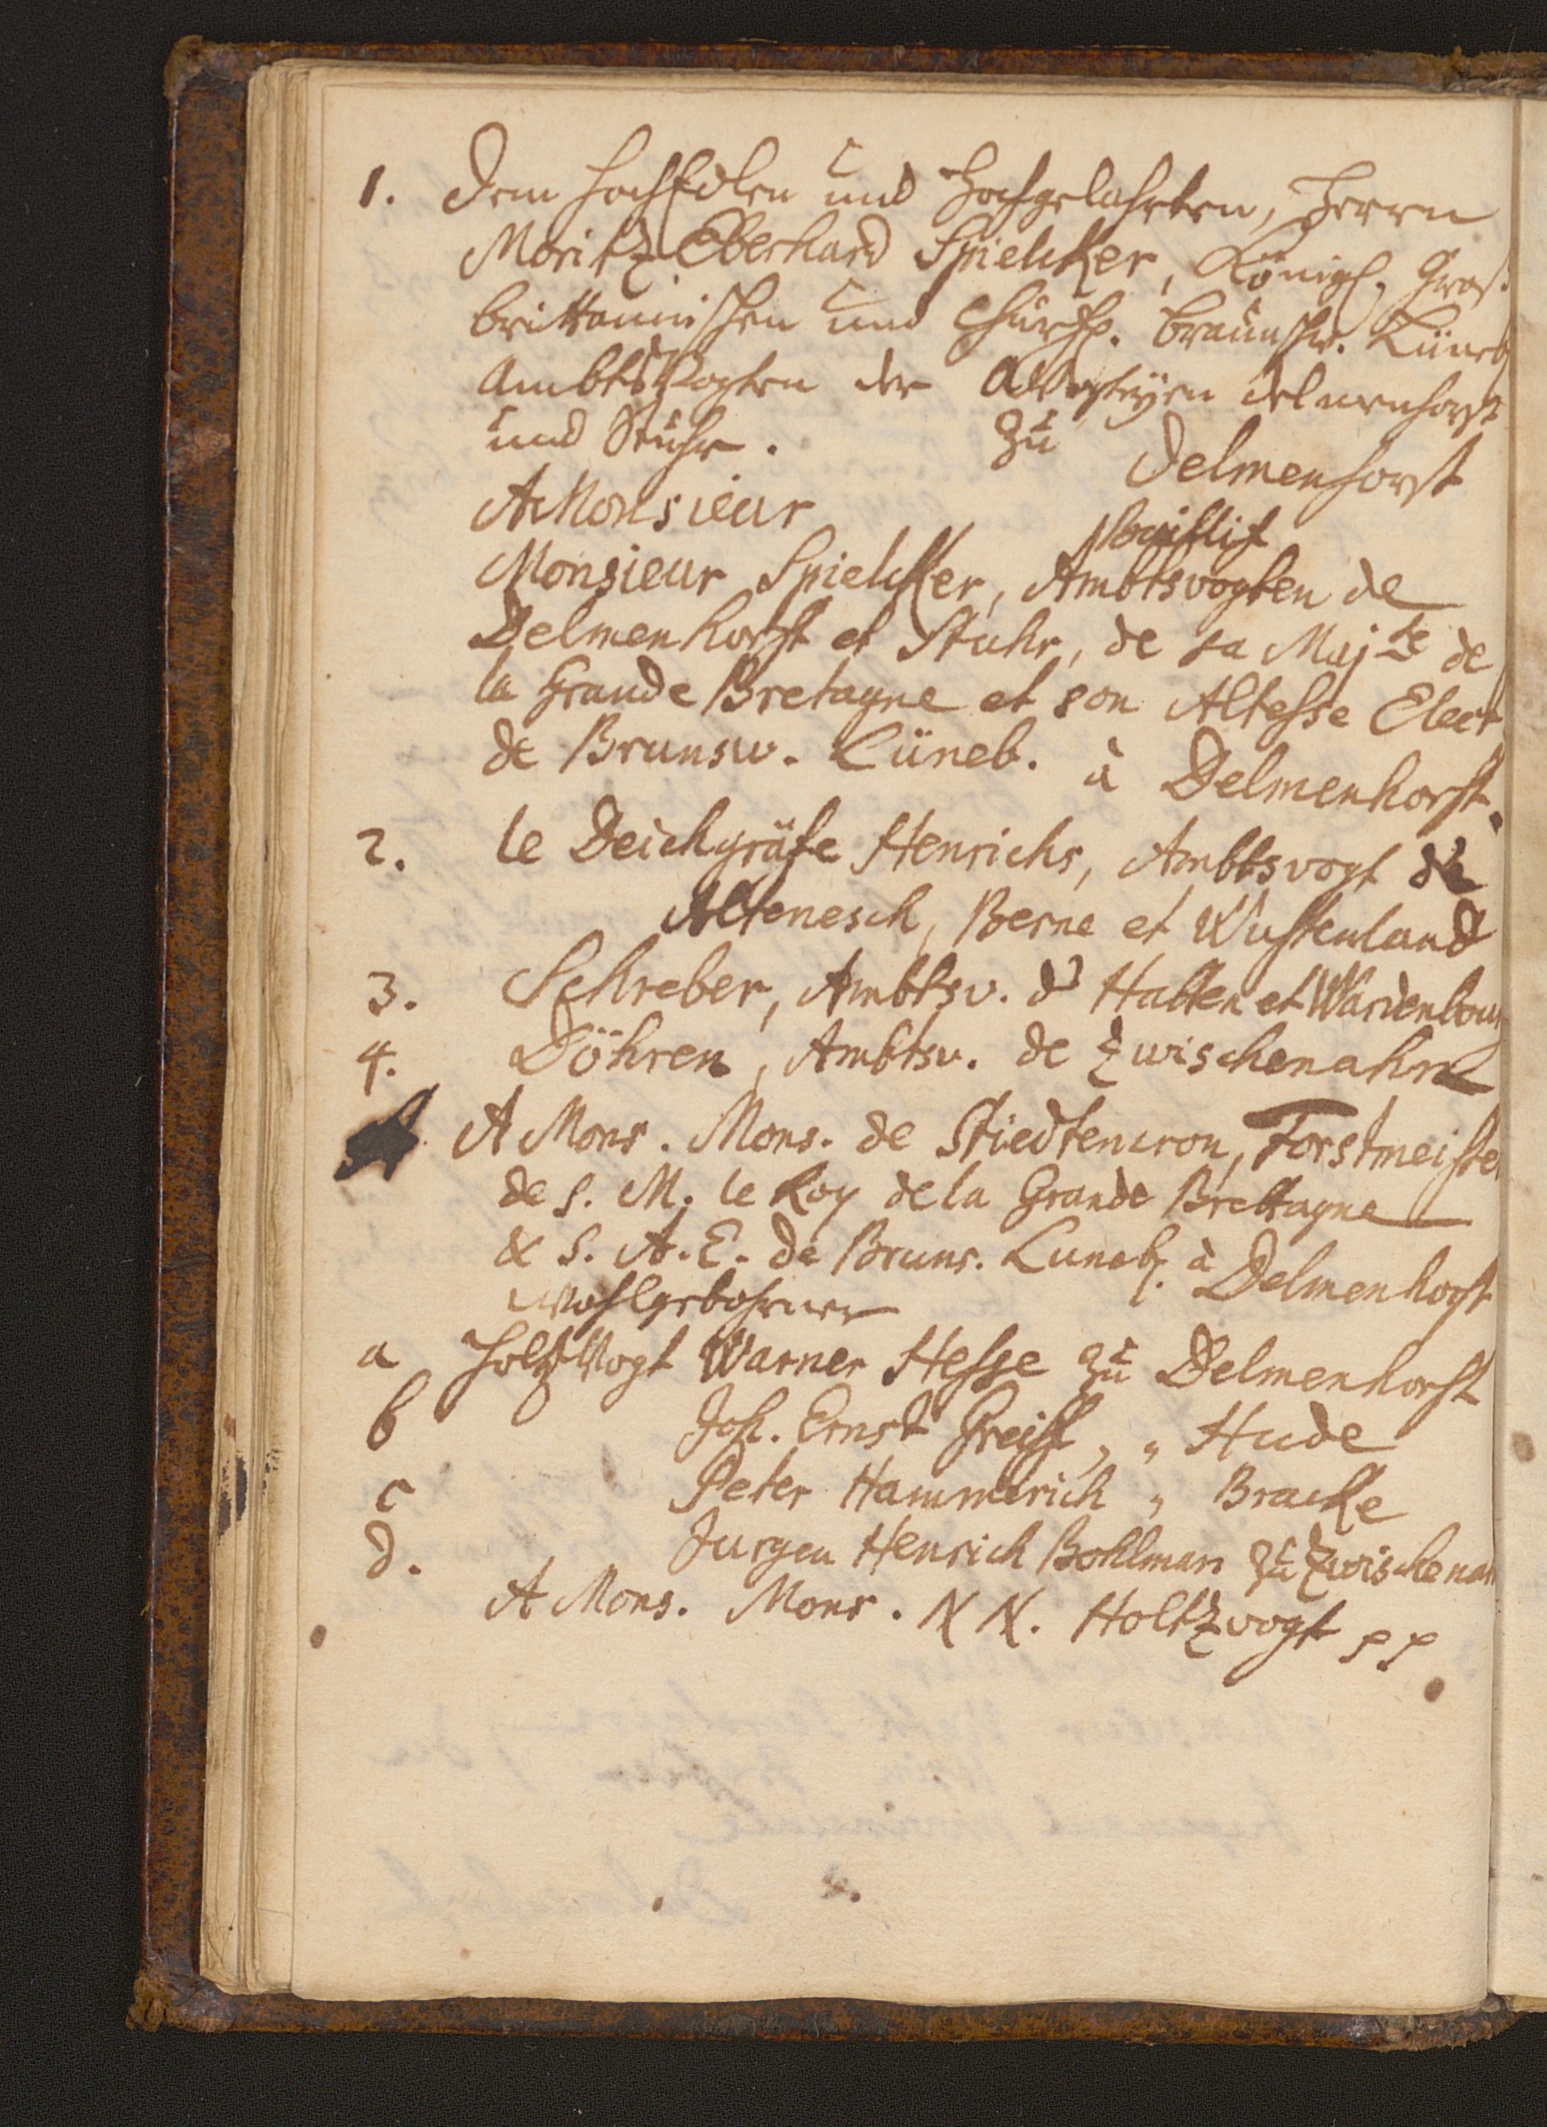 1. Dem HochEdlen und Hochgelahrten, Herrn
Moritz Eberhard Spielcker, Königl. Gros.
brittannischen und Churfl. braunschw. Lüneb
Ambts Vogten der Vogteyen delmenhorst
und Stuhr. Zu Delmenhorst
A Monsieur
Monsieur Spielcker, Ambtsvogten de
Delmenhorst et Stuhr, de sa Maj te de
la Grande Bretagne et son Altesse Elect
de Brunsw. Lüneb. à Delmenhorst.
2. le Deichgräfe Henrichs, Ambtsvogt de
Altenesch, Berne et Wustenland
3. Schreber, Ambtsv. d' Hatten et Wardenbour
4. Döhren, Ambtsv. de Zwischenahn
A Mons. Mons. de Stiedtencron, Forstmeister
de S. M. le Roy de la Grande Brettagne
& S. A. E. de Bruns. Luneb. à Delmenhorst
Wohlgebohrner
a Holtz Vogt Warner Hesse zu Delmenhorst
b Joh. Ernst Greiff, " Hude
c Peter Hammerich " Bracke
d. Jurgen Henrich Bohlman zu Zwischenah
A Mons. Mons. N N. Holtzvogt pp